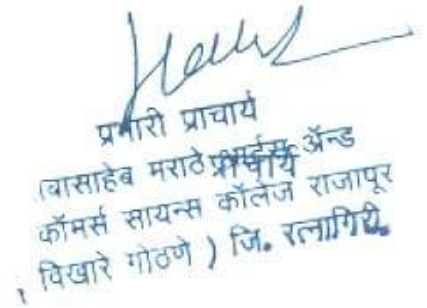 प्रभारी प्राचार्य
बासाहेब मराठे आर्ट्स ॲन्ड
प्राचार्य
कॉमर्स सायन्स कॉलेज राजापूर
विखारे गोठणे ) जि. रत्नागिरी.